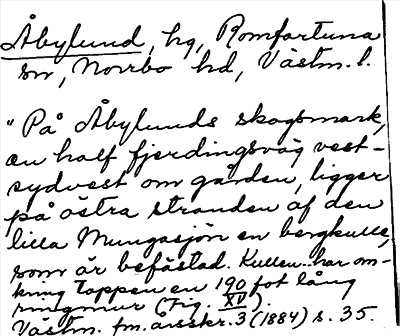 Åbylund, hg, Romfartuna
sn, Norrbo hd, Västm. l.
"På Åbylunds skogsmark,
en half fjerdingsväg vest-
sydvest om gården, ligger
på östra stranden af den
lilla Mungasjön en bergkulle,
som är befästad. Kullen har om-
kring toppen en 190 fot lång
ringmur (Fig. XV).
Västm. fm. årsskr. 3 (1884) s. 35.